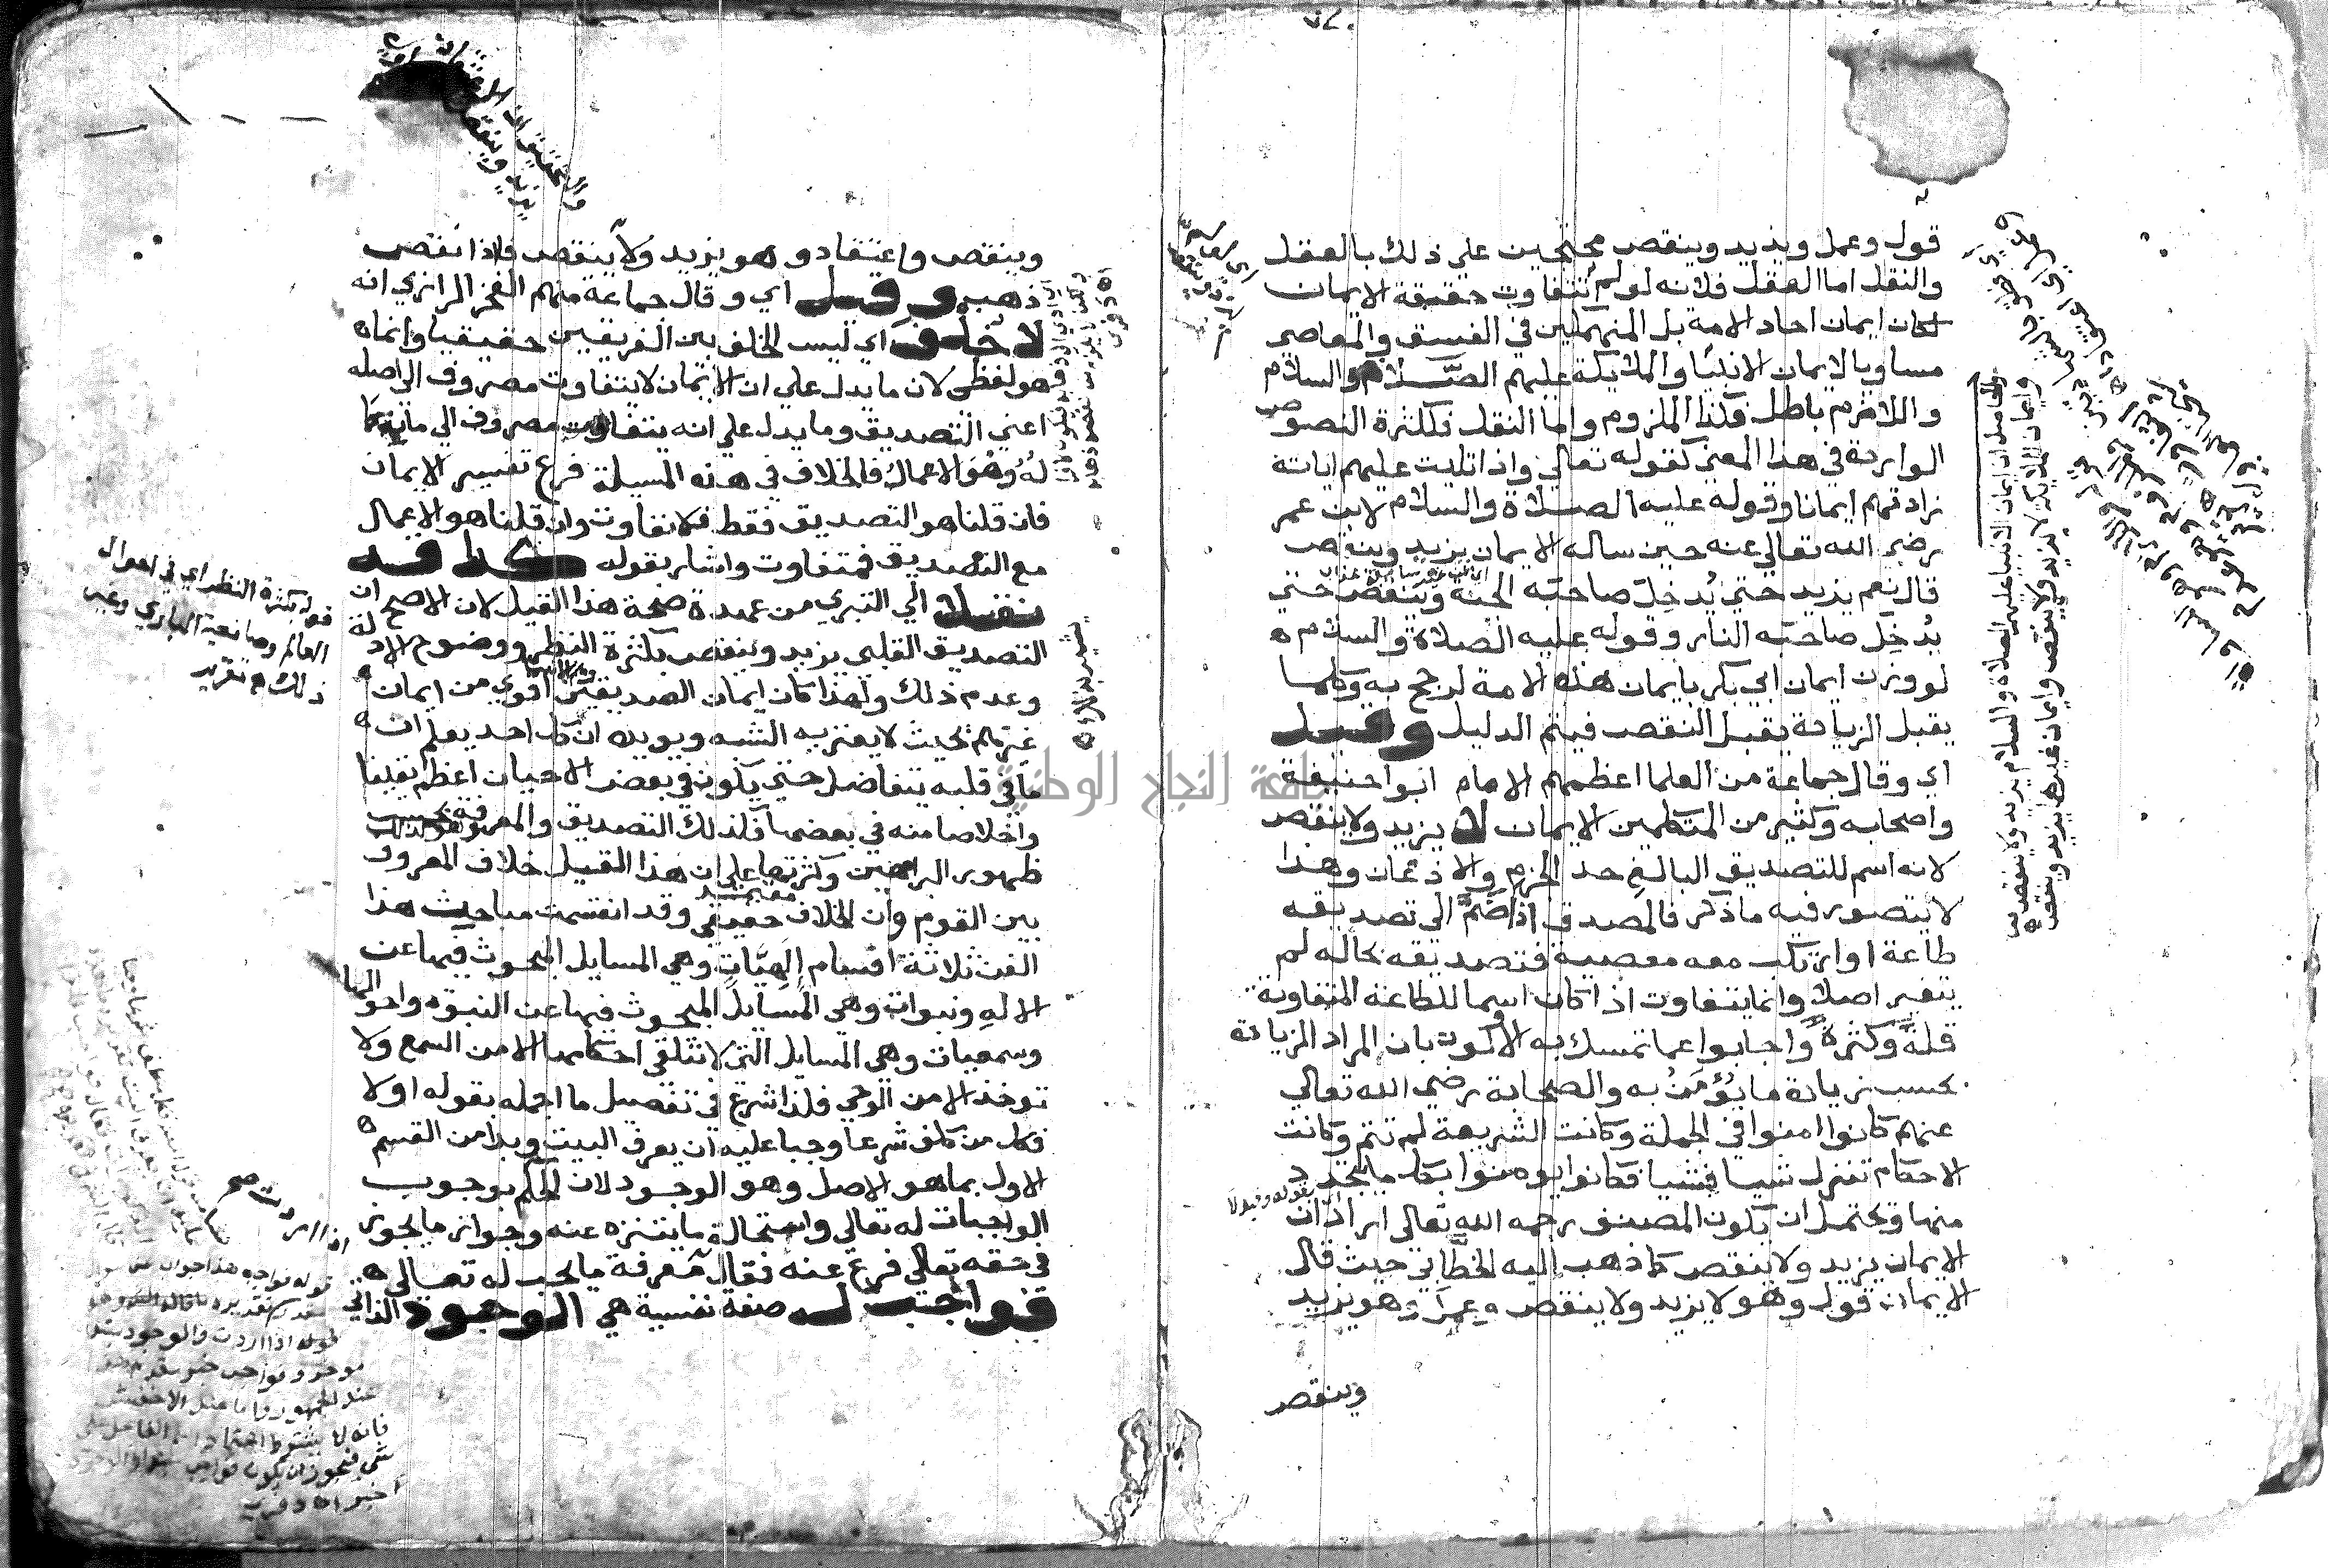 قول وعمل ويزيد وينقص محتجين علي ذلك بالعقل
والنقل اما العقل فلانه لو لم تتفاوت حقيقة الايمان
لكان ايمان احاد الامة بل المنهمكين في الفسق والمعاصي
مساويا لايمان الانبيا والملايكة عليهم الصلاة والسلام
واللازم باطل فكذا الملزوم واما النقل فلكثرة النصوص
الواردة في هذا المعني كقوله تعالي واذا تليت عليهم اياته
زادتهم ايمانا وقوله عليه الصلاة والسلام لابن عمر
رضي الله تعالي عنه حين ساله الايمان يزيد وينقص
قال نعم يزيد حتي يُدخِل صاحبَه الجنة وينقص حتي
يُدخِل صاحبَه النار وقوله عليه الصلاة والسلام
لو وزن ايمان ابي بكر بايمان هذه الامة لرجح به وكلما
يقبل الزيادة يقبل النقص فيتم الدليل وقيل
اي وقال جماعة من العلما اعظمهم الامام ابوا حنيفة
واصحابه وكثير من المتكلمين الايمان لا يزيد ولا ينقص
لانه اسم للتصديق البالغ حد الجزم والاذعان وهذا
لا يتصور فيه ما ذكر فالمصدق اذا ضمَّ الي تصديقه
طاعة او ارتكب معه معصية فتصديقه بحاله لم
يتغير اصلا وانما يتفاوت اذا كان اسما للطاعة المتفاوتة
قلةً وكثرةً واجابوا عما تمسك به الاولون بان المراد الزيادة
بحسب زيادة ما يُؤمَنُ به والصحابة رضي الله تعالي
عنهم كانوا امنوا في الجملة وكانت الشريعة لم تتم وكانت
الاحكام تنزل شيا فشيا فكانوا يومنوا بكل ما يتجدد
منها ويحتمل ان يكون المصنف رحمه الله تعالي اراد ان
الايمان يزيد ولا ينقص كما ذهب اليه الخطّابي حيث قال
الايمان قول وهو لا يزيد ولا ينقص وعمل وهو يزيد
وينقص
وينقص واعتقاد وهو يزيد ولا ينقص فاذا نقص
ذهب وقيل اي وقال جماعة منهم الفخر الرازي انه
لا خلف اي ليس الخلف بين الفريقين حقيقيا وانما
هو لفظي لان ما يدل علي ان الايمان لا يتفاوت مصروف الي اصله
اعني التصديق وما يدل علي انه يتفاوت مصروف الي ما به كما
له وهو الاعمال فالخلاف في هذه المسيلة فرع تفسير الايمان
فان قلنا هو التصديق فقط فلا تفاوت وان قلنا هو الاعمال
مع التصديق فمتفاوت واشار بقوله كذا قد
نقلا الي التبري من عهدة صحة هذا القيل لان الاصح ان
التصديق القلبي يزيد وينقص بكثرة النظر ووضوح الادلة
وعدم ذلك ولهذا كان ايمان الصديقين اقوي من ايمان
غيرهم بحيث لا يعتريه الشبه ويويده ان كل احد يعلم ان
ما في قلبه يتفاضل حتي يكون في بعض الاحيان اعظم يقينا
واخلاصا منه في بعضها فكذلك التصديق والمعرفة بحسب
ظهور البراهين وكثرتها علي ان هذا القيل خلاف المعروف
بين القوم وان الخلاف حقيقي وقد انقسمت مباحث هذا
الفن ثلاثة اقسام الهيّات وهي المسايل المبحوث فيها عن
الاله ونبوات وهي المسايل المبحوث فيها عن النبوة واحوالها
وسمعيات وهي المسايل التي لا تتلقي احكامها الا من السمع ولا
توخذ الا من الوحي فلذا شرع في تفصيل ما اجمله بقوله اولا
فكل من كلف شرعا وجبا عليه ان يعرف البيت وبدا من القسم
الاول بما هو الاصل وهو الوجود لان الحكم بوجوب
الواجبات له تعالي واستحالة ما يتنزه عنه وجواز ما يجوز
في حقه تعالي فرع عنه فقال معرفة ما يجب له تعالي
فواجب له صفة نفسية هي الوجود الذاتي
قوله بكثرة النظر اي في احوال
العالم وصانعية الباري وغير
ذلك تقرير
والحاصل ان ايمان الانبيا عليهم الصلاة والسلام يزيد ولا ينقص
وايمان الملايكة لا يزيد ولا ينقص وايمان غيرهم يزيد وينقص
جامعة النجاح الوطنية